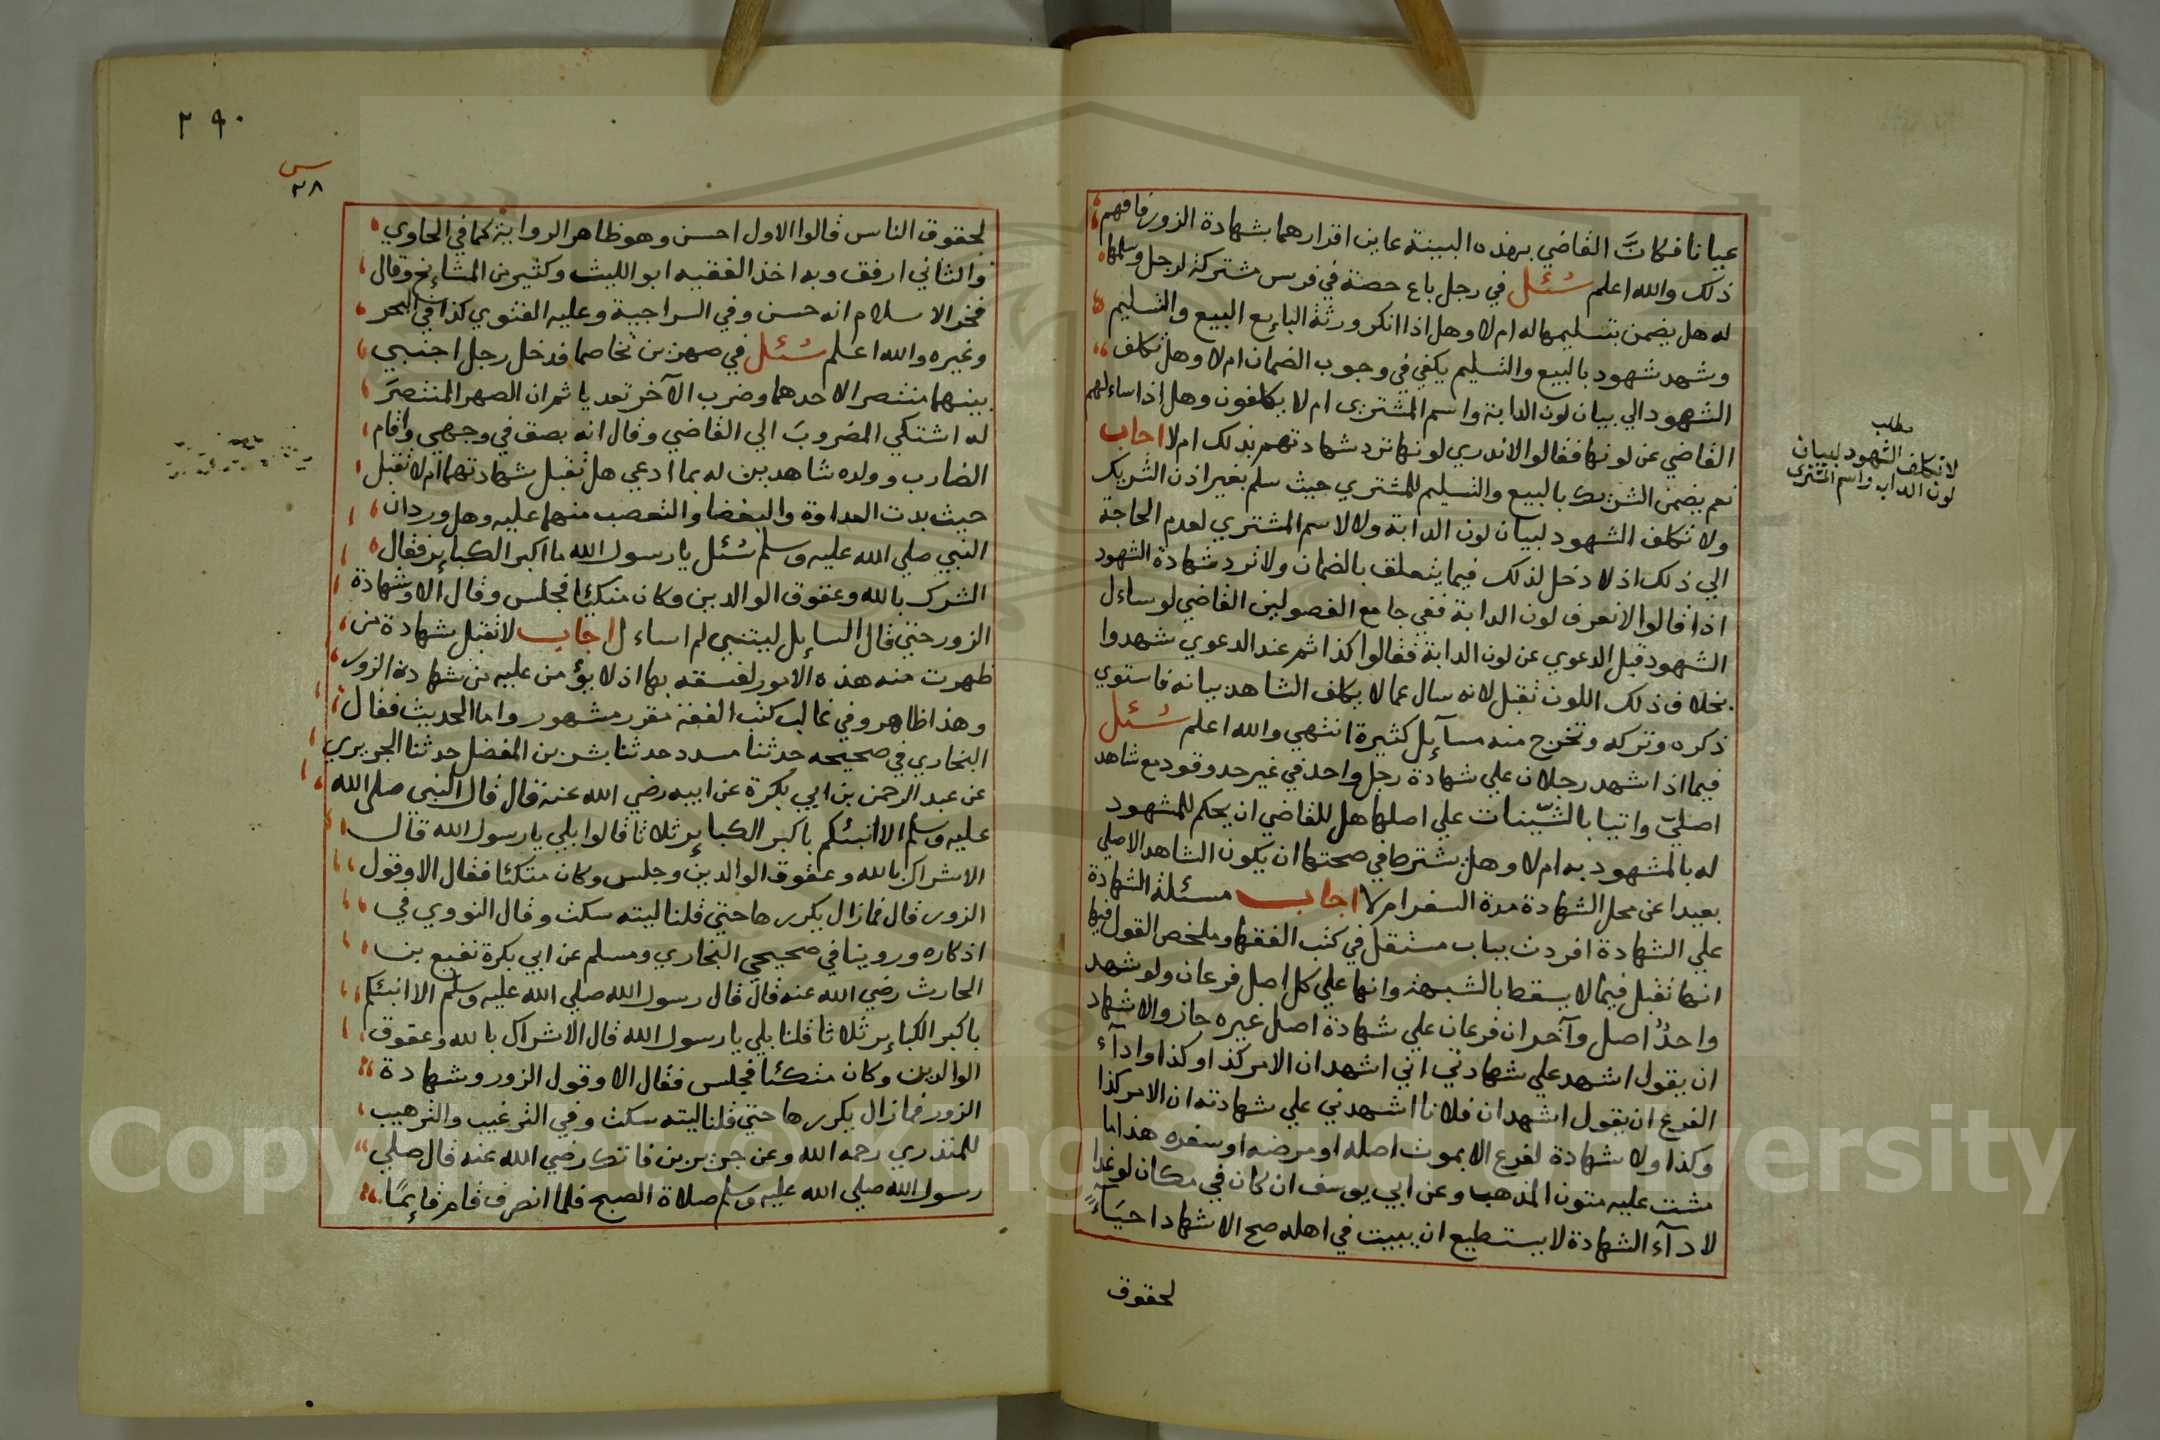 عيانا فكانَّ القاضي بهذه البينة عاين اقرارهما بشهادة الزور فافهم
ذلك والله اعلم سُئل في رجل باع حصة في فرس مشتركة لرجل وسلمها
له هل يضمن بتسليمها له ام لا وهل اذا انكر ورثة البايع البيع والتسليم
وشهد شهود بالبيع والتسليم يكفي في وجوب الضمان ام لا وهل تكلف
الشهود الي بيان لون الدابة واسم المشتري ام لا يكلفون وهل اذا ساءلهم
القاضي عن لونها فقالوا لاندري لونها ترد شهادتهم بذلك ام لا اجاب
نعم يضمن الشريك بالبيع والتسليم للمشتري حيث سلم بغير اذن الشريك
ولا تكلف الشهود لبيان لون الدابة ولا لاسم المشتري لعدم الحاجة
الي ذلك اذ لا دخل لذلك فيما يتعلق بالضمان ولا ترد شهادة الشهود
اذا قالوا لا نعرف لون الدابة ففي جامع الفصولين القاضي لو ساءل
الشهود قبل الدعوي عن لون الدابة فقالوا كذا ثم عند الدعوي شهدوا
بخلاف ذلك اللون تقبل لانه سال عما لا يكلف الشاهد بيانه فاستوي
ذكره وتركه وتخرج منه مسآيل كثيرة انتهي والله اعلم سُئل
فيما اذا شهد رجلان علي شهادة رجل واحد في غير حد وقود مع شاهد
اصليّ واتيا بالشّينات علي اصلها هل للقاضي ان يحكم للمشهود
له بالمشهود به ام لا وهل يشترط في صحتها ان يكون الشاهد الاصلي
بعيدا عن محل الشهادة مدة السفر ام لا اجاب مسئلة الشهادة
علي الشهادة افردت بباب مستقل في كتب الفقه وملخص القول فيها
انها تقبل فيما لا يسقط بالشبهة وانها علي كل اصل فرعان ولو شهد
واحدٌ اصل وآخران فرعان علي شهادة اصل غيره جاز والاشهاد
ان يقول اشهد علي شهادتي اني اشهد ان الامر كذا وكذا واداَء
الفرع ان يقول اشهد ان فلانا اشهدني علي شهادته ان الامر كذا
وكذا ولا شهادة لفرع الا بموت اصله او مرضه او سفره هذا ما
مشت عليه متون المذهب وعن ابي يوسف ان كان في مكان لو غدا
لادآء الشهادة لا يستطيع ان يبيت في اهله صح الاشهاد احيَآءً
لحقوق
مطلب
لا تكلف الشهود لبيان
لون الدابه واسم المشترى
٢٩٠
س
٢٨
لحقوق الناس قالوا الاول احسن وهو ظاهر الرواية كما في الحاوي
والثاني ارفق وبه اخذ الفقيه ابو الليث وكثير من المشايخ وقال
فخر الاسلام انه حسن وفي السراجية وعليه الفتوي كذا في البحر
وغيره والله اعلم سُئل في صهرين تخاصما فدخل رجل اجنبي
بينهما منتصرا لاحدهما وضرب الآخر تعديا ثم ان الصهر المنتصَرَ
له اشتكي المضروبَ الي القاضي وقال انه بصق في وجهي واقام
الضارب وولده شاهدين له بما ادعي هل تقبل شهادتهما ام لا تقبل
حيث بدت العداوة والبغضا والتعصب منهما عليه وهل ورد ان
النبي صلي الله عليه وسلم سُئل يا رسول الله ما اكبر الكباير فقال
الشرك بالله وعقوق الوالدين وكان متكيا فجلس وقال الا وشهادة
الزور حتي قال السايل ليتني لم اساءل اجاب لا تقبل شهادة من
ظهرت منه هذه الامور لفسقه بها اذ لا يؤمن عليه من شهادة الزور
وهذا ظاهر وفي غالب كتب الفقه مقرر مشهور واما الحديث فقال
البخاري في صحيحه حدثنا مسدد حدثنا بشر بن المفضل حدثنا الجريري
عن عبد الرحمن بن ابي بكرة عن ابيه رضي الله عنه قال قال النبي صلي الله
عليه وسلم الا انبئكم باكبر الكباير ثلاثا قالوا بلي يا رسول الله قال
الاشراك بالله وعقوق الوالدين وجلس وكان متكئا فقال الا وقول
الزور قال فما زال يكررها حتي قلنا ليته سكت وقال النووي في
اذكاره وروينا في صحيحي البخاري ومسلم عن ابي بكرة نفيع بن
الحارث رضي الله عنه قال قال رسول الله صلي الله عليه وسلم الا انبئكم
باكبر الكباير ثلاثا قلنا بلي يا رسول الله قال الاشراك بالله وعقوق
الوالدين وكان متكئا فجلس فقال الا وقول الزور وشهادة
الزور فما زال يكررها حتي قلنا ليته سكت وفي الترغيب والترهيب
للمنذري رحمه الله وعن خريم بن فاتك رضي الله عنه قال صلي
رسول الله صلي الله عليه وسلم صلاة الصبح فلما انصرف قام قايمًا
Copyright © King Saud University